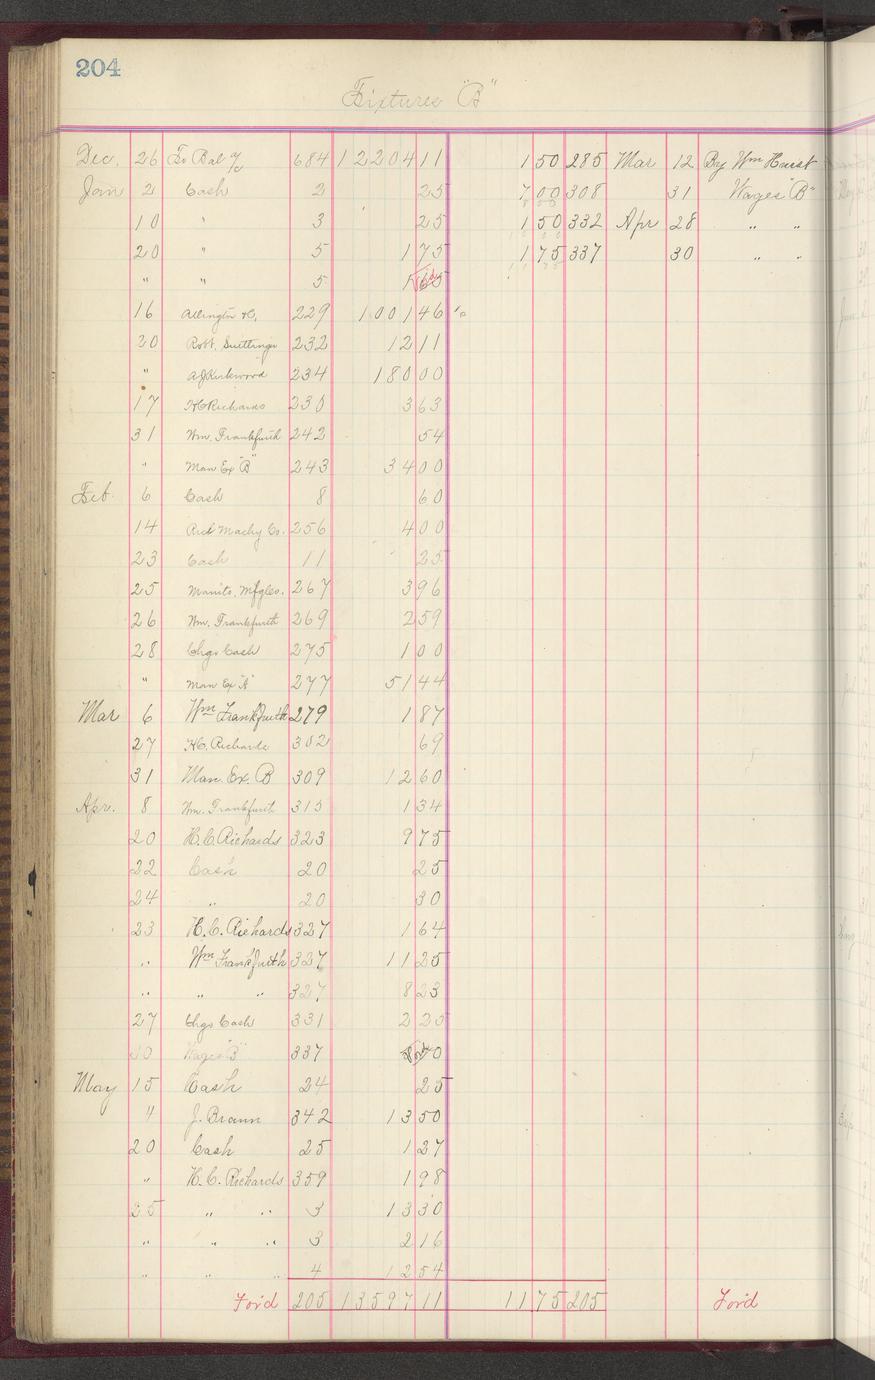 204
Fixtures "B"
Dec. 26 To Bal a/c 684 12204 11 1 50 285 Mar 12 By Wm Hurst
Jan 2 Cash 2 25 7 00 308 31 Wages "B"
10 " 3 25 1 50 332 Apr 28 " "
20 " 5 1 75 1 75 337 30 " "
" " 5 1
16 Allington & Co, 229 1001 46
20 Robt. 232 12 11
" A J Kirkwood 234 180 00
17 H C Richards 230 3 63
31 Wm. Frankfurth 242 54
" Man Ex "B" 243 34 00
Feb. 6 Cash 8 60
14 Rich Machy Co. 256 4 00
23 Cash 11 25
25 Manito. Mfg Co. 267 3 96
26 Wm. Frankfurth 269 2 59
28 Chgs Cash 275 1 00
" Man Ex "A" 277 51 44
Mar 6 Wm Frankfurth 279 1 87
27 H C. Richards 302 69
31 Man. Ex. B 309 12 60
Apr. 8 Wm. Frankfurth 315 1 34
20 H. C. Richards 323 9 75
22 Cash 20 25
24 " 20 30
23 H. C. Richards 327 1 64
" Wm Frankfurth 327 11 25
" " " 327 8 23
27 Chgs Cash 331 2 25
30 Wages "B" 337
May 15 Cash 24 25
" J. Braun 342 13 50
20 Cash 25 1 27
" H. C. Richards 359 1 98
25 " " 3 13 30
" " " 3 2 16
" " " 4 12 54
For'd 205 13597 11 11 75 205 For'd